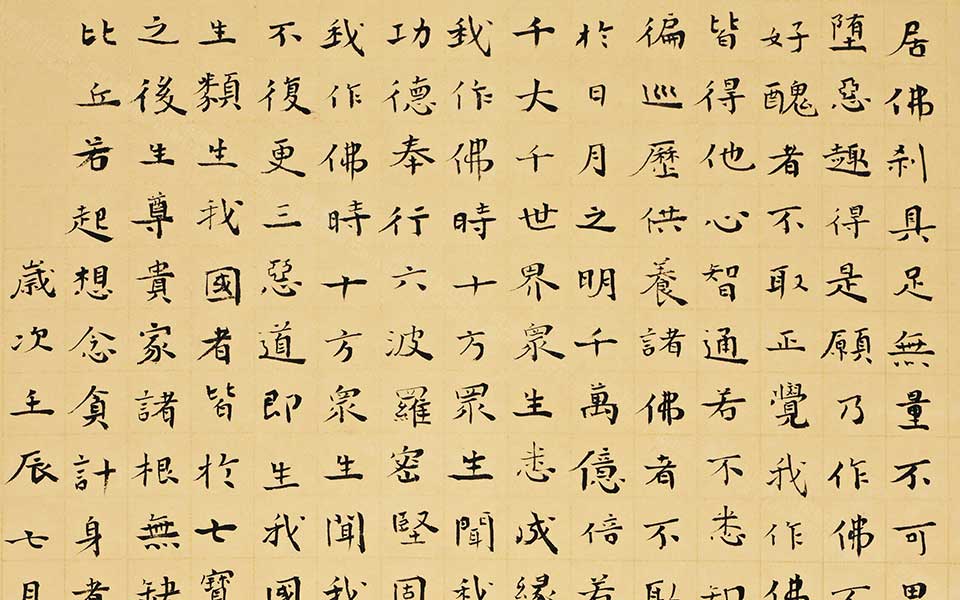 居佛刹具足無量不可思
堕惡趣得是願乃作佛不
好醜者不取正覺我作佛
皆得他心智通若不悉知
徧巡歷供養諸佛者不取
於日月之明千萬億倍若
千大千世界衆生悉成緣
我作佛時十方眾生聞我
功德奉行六波羅密堅固
我作佛時十方衆生聞我
不復更三惡道即生我國
生類生我國者皆於七寶
之後生尊貴家諸根無缺
比丘若起想念貪計身者
歲次壬辰七月